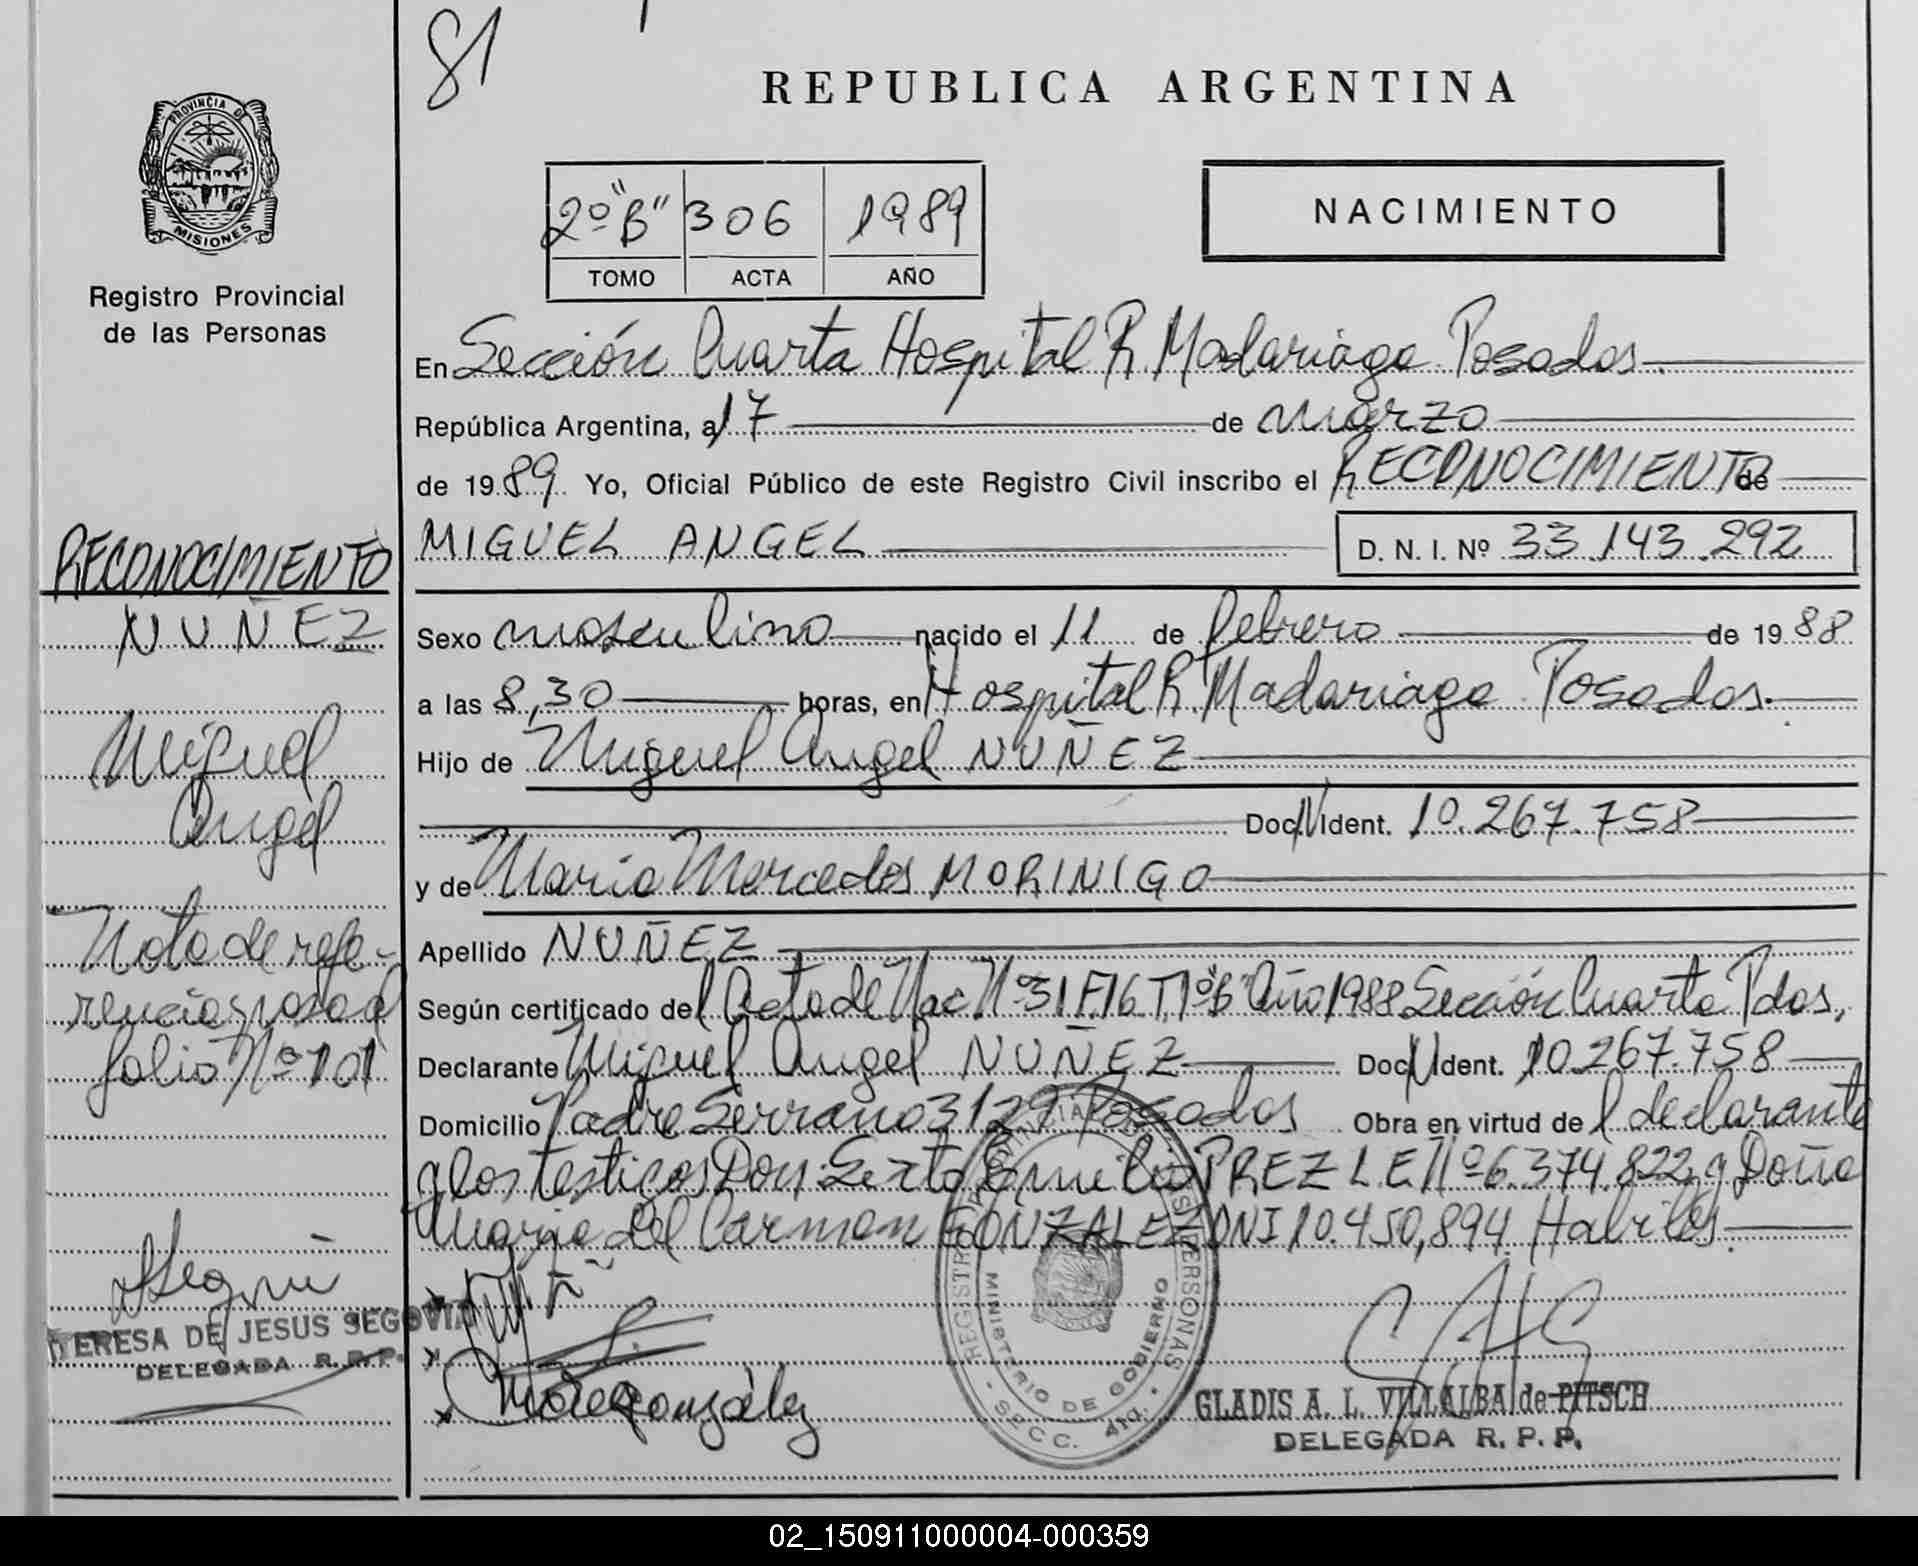 81
REPUBLICA ARGENTINA
PROVINCIA DE
MISIONES
Registro Provincial
de las Personas
2º "B" 306 1989
TOMO ACTA AÑO
NACIMIENTO
En Sección Cuarta Hospital R. Madariaga Posadas.
República Argentina, a 17 de marzo
de 1989. Yo, Oficial Público de este Registro Civil inscribo el RECONOCIMIENTO de
MIGUEL ANGEL D. N. I. Nº 33.143.292
Sexo masculino nacido el 11 de febrero de 1988
a las 8,30 horas, en Hospital R. Madariaga Posadas.
Hijo de Miguel Angel NUÑEZ
Doc. N Ident. 10.267.758
y de Maria Mercedes MORINIGO
Apellido NUÑEZ
Según certificado del Acta de Nac Nº 31 F.16 T.1º"B" Año 1988 Sección Cuarta Pdas,
Declarante Miguel Angel NUÑEZ Doc. N Ident. 10.267.758
Domicilio Padre Serrano 3129 Posadas Obra en virtud del declarante
y los testigos Don: Sixto PREZ L.E. Nº 6.374.822 y Doña
Maria del Carmen GONZALEZ DNI 10.450,894 Habiles.
RECONOCIMIENTO
NUÑEZ
Miguel
Angel
Nota de refe-
rencia pasa al
folio Nº 101
TERESA DE JESUS SEGOVIA
DELEGADA R.P.P.
González
MINISTERIO DE GOBIERNO
GLADIS A. L. VILLALBA de PITSCH
DELEGADA R. P. P.
02_150911000004-000359